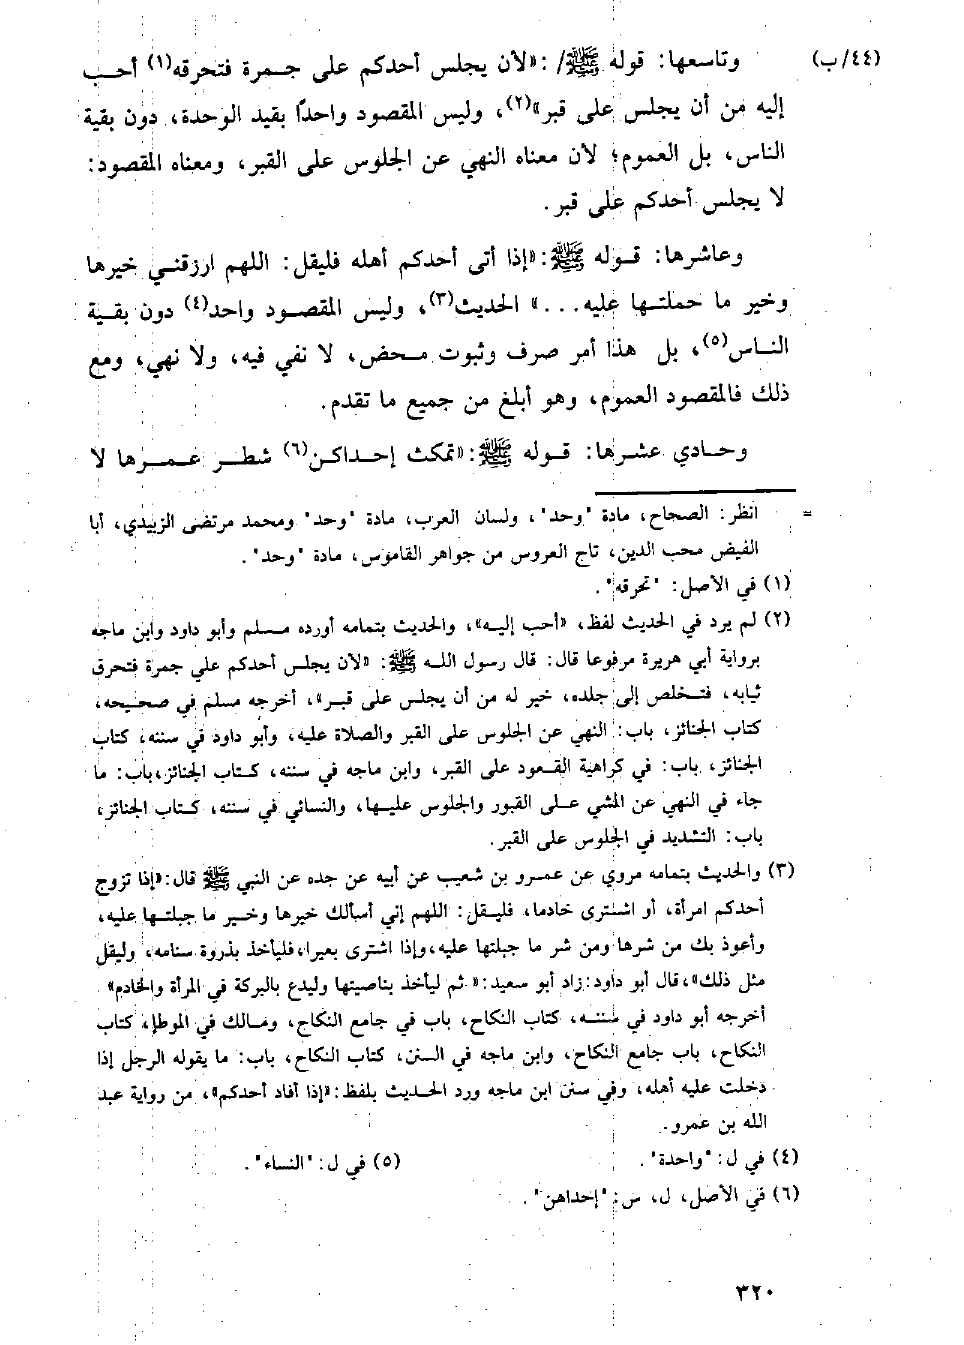 (٤٤/ب) وتاسعها: قوله ﷺ/: «لأن يجلس أحدكم على جمرة فتحرقه(١) أحب
إليه من أن يجلس على قبر»(٢)، وليس المقصود واحدًا بقيد الوحدة، دون بقية
الناس، بل العموم؛ لأن معناه النهي عن الجلوس على القبر، ومعناه المقصود:
لا يجلس أحدكم على قبر.
وعاشرها: قوله ﷺ: «إذا أتى أحدكم أهله فليقل: اللهم ارزقني خيرها
وخير ما حملتها عليه...» الحديث(٣)، وليس المقصود واحد(٤) دون بقية
الناس(٥)، بل هذا أمر صرف وثبوت محض، لا نفي فيه، ولا نهي، ومع
ذلك فالمقصود العموم، وهو أبلغ من جميع ما تقدم.
وحادي عشرها: قوله ﷺ: «تمكث إحداكن(٦) شطر عمرها لا
= انظر: الصحاح، مادة "وحد"، ولسان العرب، مادة "وحد" ومحمد مرتضى الزبيدي، أبا
الفيض محب الدين، تاج العروس من جواهر القاموس، مادة "وحد".
(١) في الأصل: "تحرقه".
(٢) لم يرد في الحديث لفظ، «أحب إليه»، والحديث بتمامه أورده مسلم وأبو داود وابن ماجه
برواية أبي هريرة مرفوعا قال: قال رسول الله ﷺ: «لأن يجلس أحدكم علي جمرة فتحرق
ثيابه، فتخلص إلى جلده، خير له من أن يجلس على قبر»، أخرجه مسلم في صحيحه،
كتاب الجنائز، باب: النهي عن الجلوس على القبر والصلاة عليه، وأبو داود في سننه، كتاب
الجنائز، باب: في كراهية القعود على القبر، وابن ماجه في سننه، كتاب الجنائز،باب: ما
جاء في النهي عن المشي على القبور والجلوس عليها، والنسائي في سننه، كتاب الجنائز،
باب: التشديد في الجلوس على القبر.
(٣) والحديث بتمامه مروي عن عمرو بن شعيب عن أبيه عن جده عن النبي ﷺ قال: «إذا تزوج
أحدكم امرأة، أو اشترى خادما، فليقل: اللهم إني أسألك خيرها وخير ما جبلتها عليه،
وأعوذ بك من شرها ومن شر ما جبلتها عليه،وإذا اشترى بعيرا،فليأخذ بذروة سنامه، وليقل
مثل ذلك»،قال أبو داود:زاد أبو سعيد:« ثم ليأخذ بناصيتها وليدع بالبركة في المرأة والخادم»
أخرجه أبو داود في سننه، كتاب النكاح، باب في جامع النكاح، ومالك في الموطإ، كتاب
النكاح، باب جامع النكاح، وابن ماجه في السنن، كتاب النكاح، باب: ما يقوله الرجل إذا
دخلت عليه أهله، وفي سنن ابن ماجه ورد الحديث بلفظ: «إذا أفاد أحدكم»، من رواية عبد
الله بن عمرو.
(٤) في ل: "واحدة". (٥) في ل: "النساء".
(٦) في الأصل، ل، س: "إحداهن".
٣٢٠